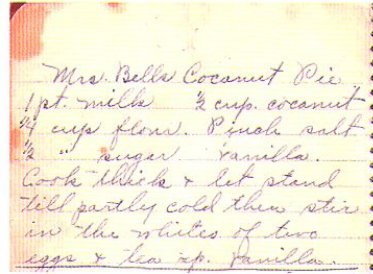 Mrs. Bells Cocanut Pie
1 pt. milk ½ cup. cocanut
¼ cup flour. Pinch salt
½ " sugar vanilla.
Cook thick & let stand
till partly cold then stir
in the whites of two
eggs & tea sp. vanilla.